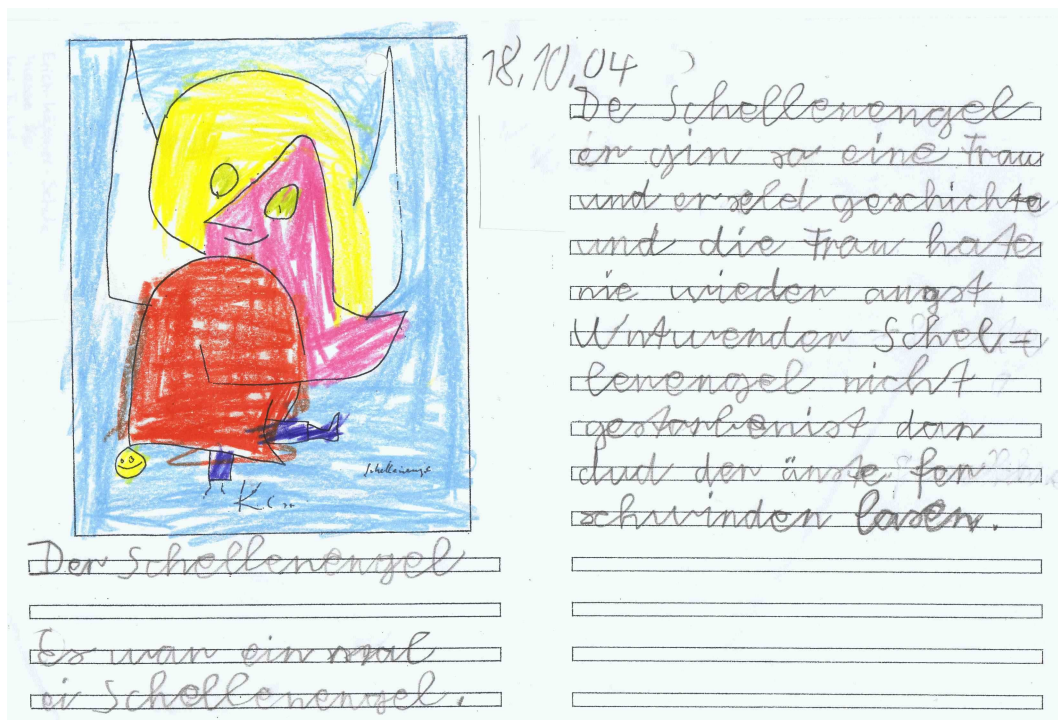 Schellenengel
Der Schellenengel
Es war ein mal
ei Schellenengel.
18.10.04
De Schellenengel
er gin so eine Frau
und erzeld geschichte
und die Frau hate
nie wieder angst.
Untwender Schel-
lenengel nicht
gestorbenist dan
dud der änste fer
schwinden lasen.